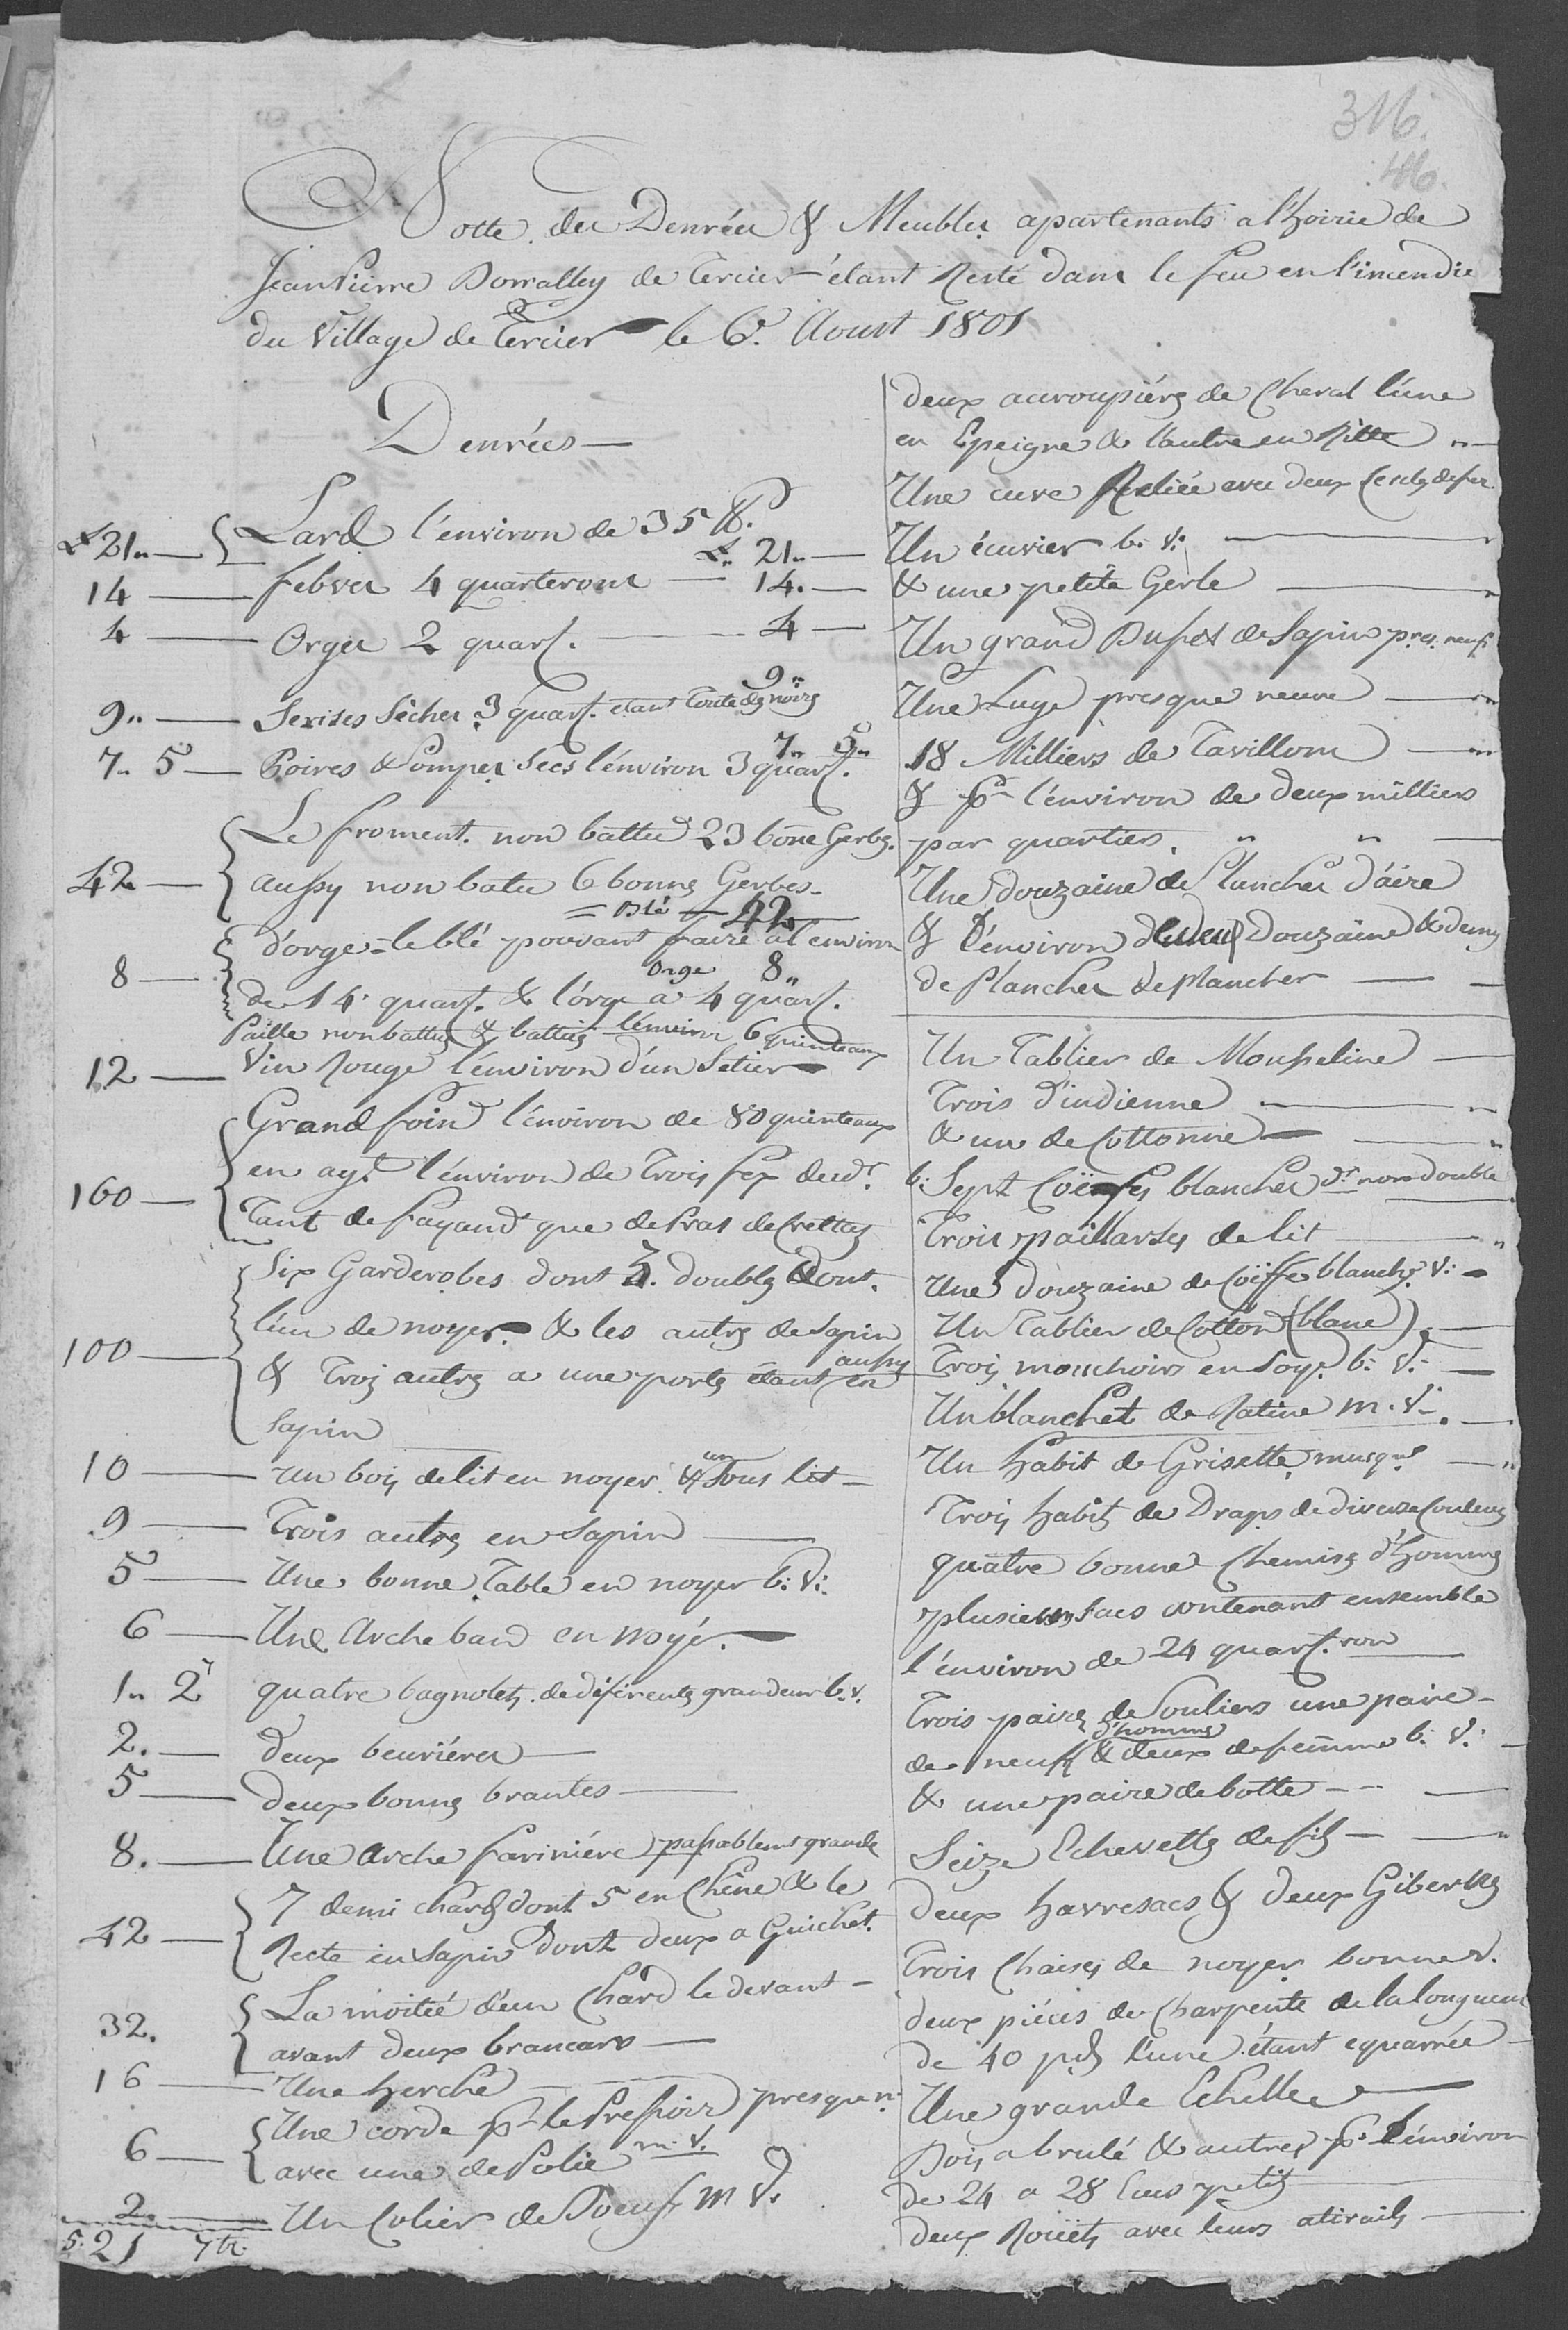 316.
416.
Notte des Denrées & Meubles apartenants a l'hoirie de
Jean Pierre Dorvalley de Tercier étant Resté dans le feu en l'incendie
du Village de Tercier le 6e. Aoust 1801
Denrées —
L 21 „ — Lard l'environ de 35 ℔. L. 21 „ —
14 — febves 4 quarterons — 14. —
4 — Orges 2 quart. — 4 —
9 „ — Serises sèches 3 quart. etant toutes noirs 9 „
7 „ 5 — Poires & Pomes Sècs l'environ 3 quart. 7 „ 5 „
Le froment. non battu 23 bone Gerbes.
42 — aussy non batu 6 bonnes Gerbes —
= Blé — 42
d'orge = le blé pouvant faire a l'environ
8 — Orge 8 „
de 14 quart. & l'orge a 4 quart.
Paille non battue & battue l'environ 6 quinteaux
12 — Vin Rouge l'environ d'un Setier
Grand foin l'environ de 80 quinteaux
en ayt. l'environ de Trois fex de
160 — Tant de fayand que de Pras de Crettaz
Six Garderobes dont 3. doubles dont.
l'un de noyer. & les autres de sapin
100 — & Trois autres a une porte étant en aussy
sapin
10 — un bois de lit en noyer. & un sous lit —
9 — Trois autres en sapin —
5 — Une bonne Table en noyer b: v:
6 — Une Arche banc en noyé.
1 „ 2 quatre bagnolets de diferents grandeur b. v.
2. — deux beurières —
5 — deux bonnes brantes —
8. — Une Arche farinière passablemt grande
7 demi chars dont 5 en Chêne & le
42 — Reste en sapin dont deux a Guichet.
La moitié d'un Chard le devant —
32. avant deux brancars —
16 — Une herche —
Une corde pr. le Pressoir presque n.
6 — avec une de Polie m. v.
2. — Un Colier de Boeuf m v.
521 7 bz.
deux accroupières de Cheval l'une
en Epeigne & l'autre en Ritte „ —
Une cuve Reliée avec deux Cercles de fer
Un écuvier b. v. —
& une petite Gerle —
Un grand Bufet de Sapin pres. neuf
Une Luge presque neuve —
18 Milliers de Tavillons —
& pr. l'environ de deux milliers
par quartiers. „ „ —
Une douzaine de Planches d'aire
& l'environ de deux Douzaine & demy
de Planches de plancher — —
Un Tablier de Mousseline —
Trois d'indienne —
& un de Cottonne —
b: Sept Coëffes blanches dt. non double
Trois paillasses de lit —
Une douzaine de Coiffe blanche. v: —
Un Tablier de Cotton (blanc) —
Trois mouchoirs en Soye b: v: —
Un blanchet de Ratine m. v. —
Un habit de Grisette musqué —
Trois habits de Draps de diverse Couleurs
quatre bonne Chemises d'homme
plusieurs sacs contenant ensemble
l'environ de 24 quart.ron —
Trois paires de Souliers une paire —
de neufs d'homme & deux de femme b. v. —
& une paire de botte — —
Seize Echevettes de fil — —
deux havresacs & deux Gibernes
Trois Chaises de noyer bonne v.
deux pièces de charpente de la longueur
de 40 pds l'une étant equarrée —
Une grande Echelle
Bois a brulé & autres pr. l'environ
de 24 a 28 petits
deux Roüets avec leurs atirails —